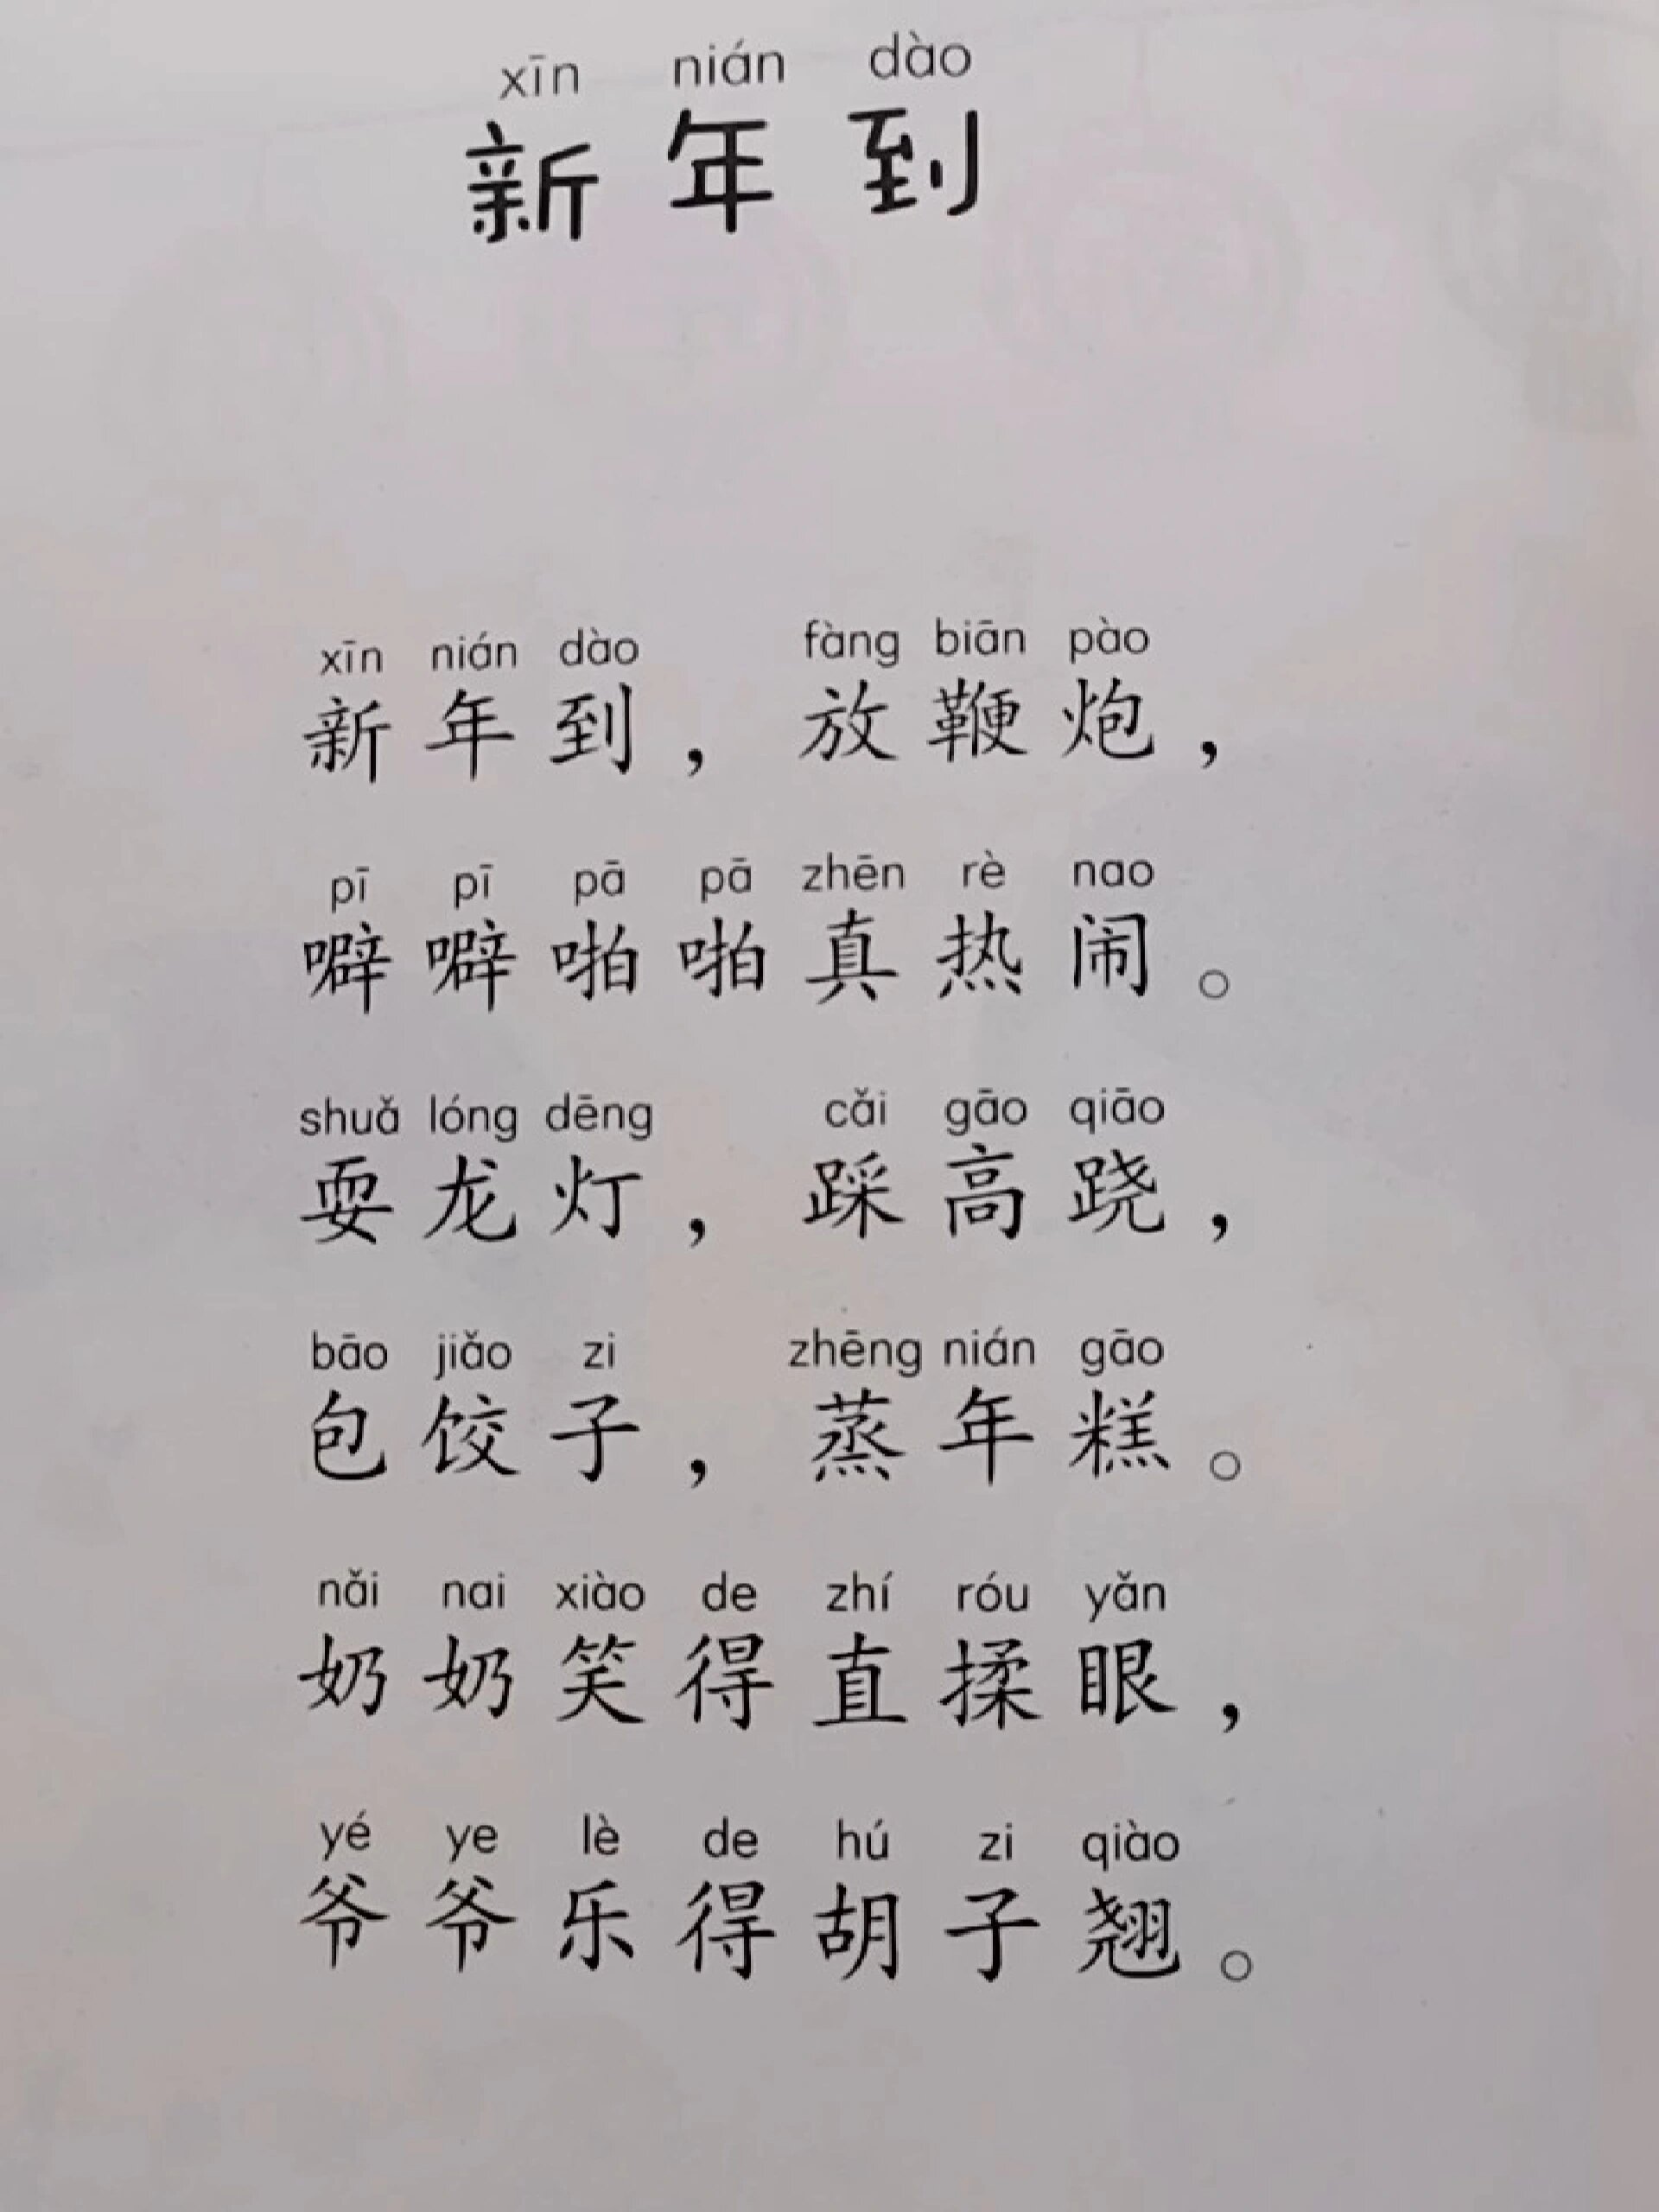 xīn nián dào
新年到
xīn nián dào fàng biān pào
新年到，放鞭炮，
pī pī pā pā zhēn rè nao
噼噼啪啪真热闹。
shuǎ lóng dēng cǎi gāo qiāo
耍龙灯，踩高跷，
bāo jiǎo zi zhēng nián gāo
包饺子，蒸年糕。
nǎi nai xiào de zhí róu yǎn
奶奶笑得直揉眼，
yé ye lè de hú zi qiào
爷爷乐得胡子翘。